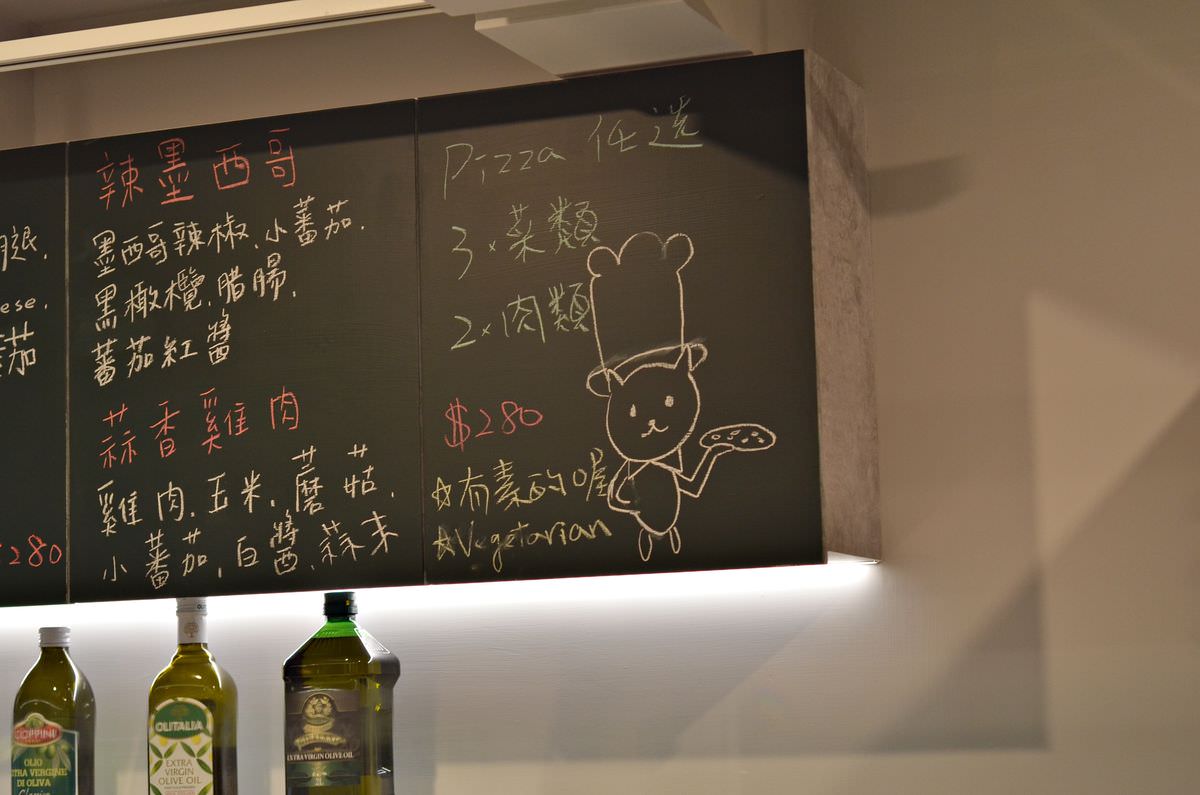 腿.
ese.
蕃茄
$280
辣墨西哥
墨西哥辣椒.小蕃茄.
黑橄欖.腊腸.
蕃茄紅醬
蒜香雞肉
雞肉.玉米.蘑菇.
小蕃茄.白醬.蒜末
Pizza 任选
3x菜類
2x肉類
$280
☆有素的喔
☆Vegetarian
COPPINI
OLIO
EXTRA VERGINE
DI OLIVA
Classico
OLITALIA
EXTRA
VIRGIN
OLIVE OIL
EXTRA VIRGIN OLIVE OIL